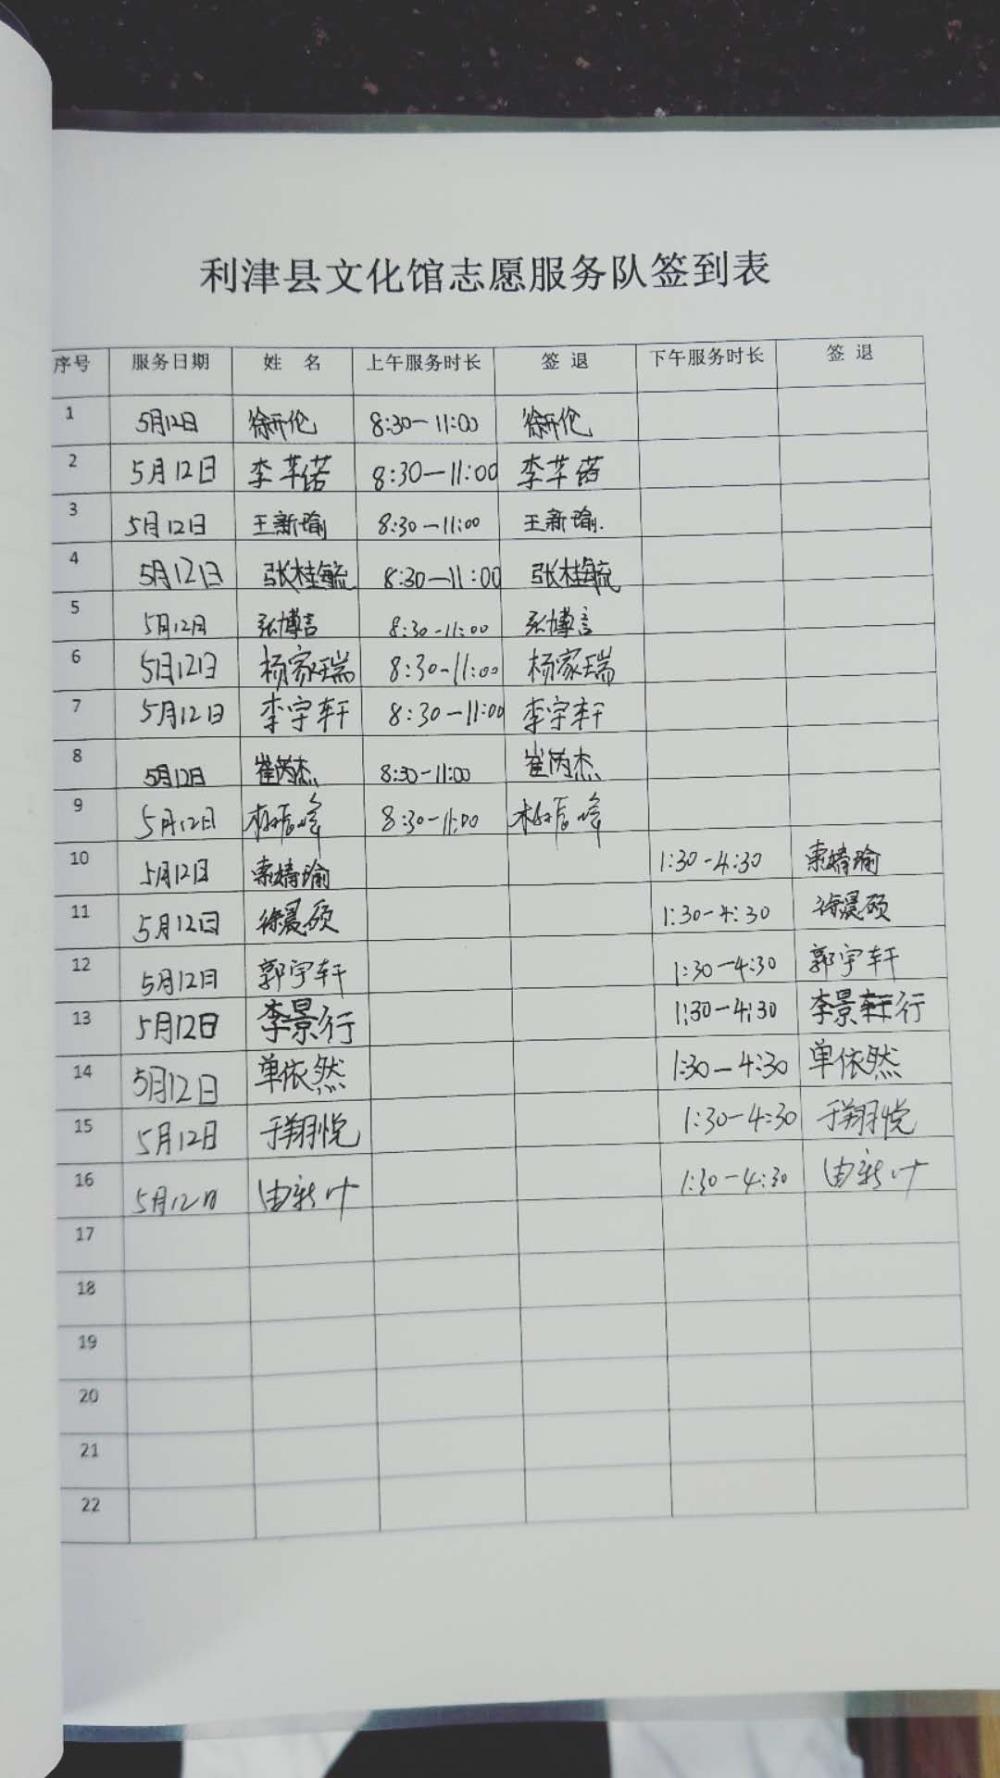 利津县文化馆志愿服务队签到表
序号 服务日期 姓 名 上午服务时长 签 退 下午服务时长 签 退
1 5月12日 徐开伦 8:30-11:00 徐开伦
2 5月12日 李芊偌 8:30-11:00 李芊偌
3 5月12日 王新瑜 8:30-11:00 王新瑜.
4 5月12日 张桂毓 8:30-11:00 张桂毓
5 5月12日 张博言 8:30-11:00 张博言
6 5月12日 杨家瑞 8:30-11:00 杨家瑞
7 5月12日 李宇轩 8:30-11:00 李宇轩
8 5月12日 崔芮杰 8:30-11:00 崔芮杰
9 5月12日 8:30-11:00
10 5月12日 索婧瑜 1:30-4:30 索婧瑜
11 5月12日 徐晨硕 1:30-4:30 徐晨硕
12 5月12日 郭宇轩 1:30-4:30 郭宇轩
13 5月12日 李景行 1:30-4:30 李景行
14 5月12日 单依然 1:30-4:30 单依然
15 5月12日 于翔悦 1:30-4:30 于翔悦
16 5月12日 由新叶 1:30-4:30 由新叶
17
18
19
20
21
22